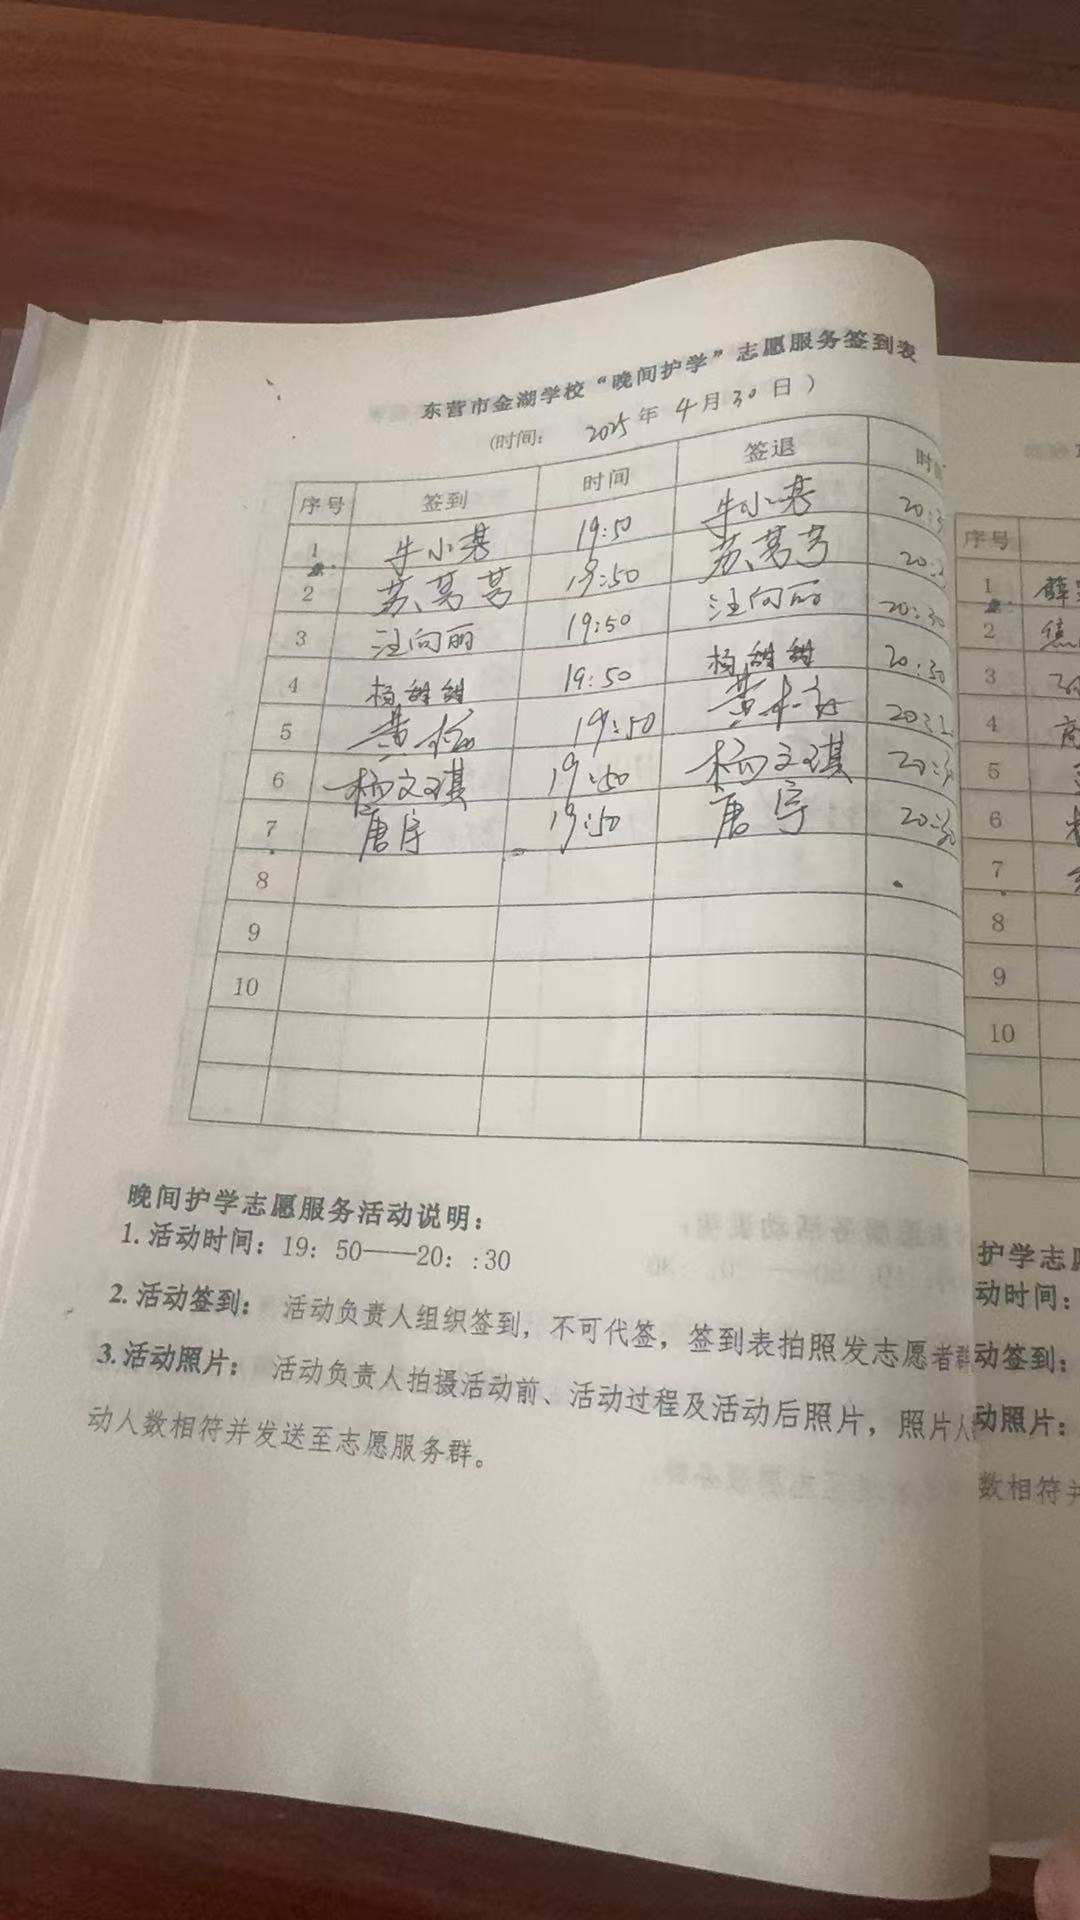 东营市金湖学校“晚间护学”志愿服务签到表
(时间： 2025年 4月 30日)
序号 签到 时间 签退 时
1 牛小 19:50 牛小 20:3
2 苏 19:50 苏 20:
3 汪向丽 19:50 汪向丽 20:30
4 杨甜甜 19:50 杨甜甜 20:30
5 黄 19:50 黄 20:
6 杨文琪 19:50 杨文琪 20:30
7 唐宇 19:50 唐宇 20:30
8
9
10
晚间护学志愿服务活动说明：
1. 活动时间：19：50——20：:30
2. 活动签到： 活动负责人组织签到，不可代签，签到表拍照发志愿者群
3. 活动照片： 活动负责人拍摄活动前、活动过程及活动后照片，照片人
动人数相符并发送至志愿服务群。
序号
1 薛
2 焦
3
4
5
6
7
8
9
10
护学志愿
动时间：
动签到：
动照片：
数相符并